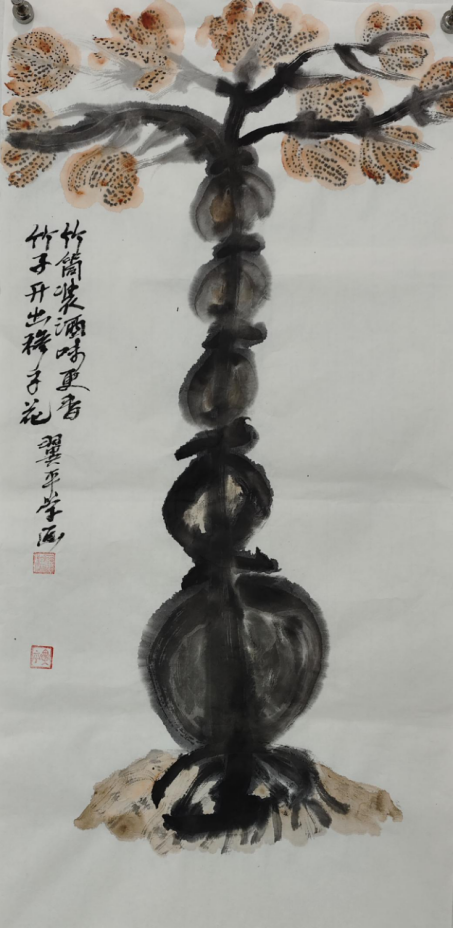 竹筒装酒味更香
竹子开出花
翼平学画